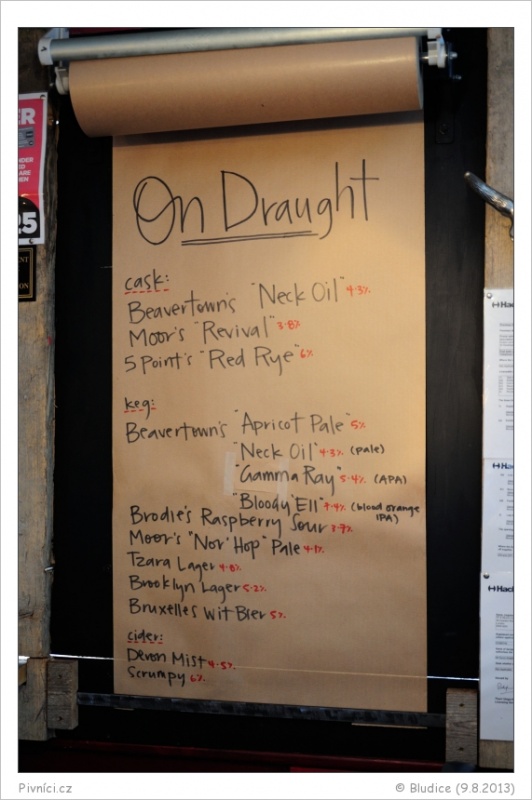 On Draught
cask:
Beavertown's "Neck Oil" 4·3%
Moor's "Revival" 3·8%
5 Point's "Red Rye" 6%
keg:
Beavertown's "Apricot Pale" 5%
"Neck Oil" 4·3% (pale)
"Gamma Ray" 5·4% (APA)
"Bloody 'Ell" (blood orange
IPA)
Brodie's Raspberry Sour
Moor's "Nor' Hop" Pale 4·1%
Tzara Lager 4·8%
Brooklyn Lager 5·2%
Bruxelles Wit Bier 5%
cider:
Devon Mist 4·5%
Scrumpy 6%
Pivníci.cz
© Bludice (9.8.2013)